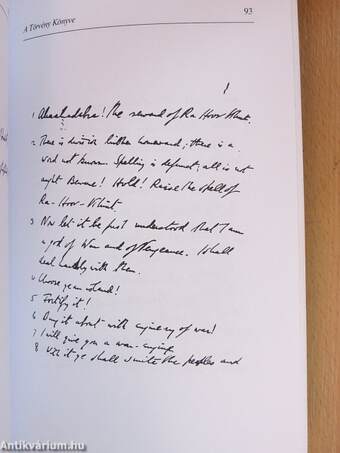 A Törvény Könyve
93
1
1 Abrahadabra! the reward of Ra Hoor Khut.
2. There is division hither homeward; there is a
word not known. Spelling is defunct; all is not
aught. Beware! Hold! Raise the spell of
Ra-Hoor-Khuit.
3 Now let it be first understood that I am
a god of War and of Vengeance. I shall
deal hardly with them.
4 Choose ye an island!
5 Fortify it!
6 Dung it about with enginery of war!
7 I will give you a war-engine.
8 With it ye shall smite the peoples and
Antikvárium.hu